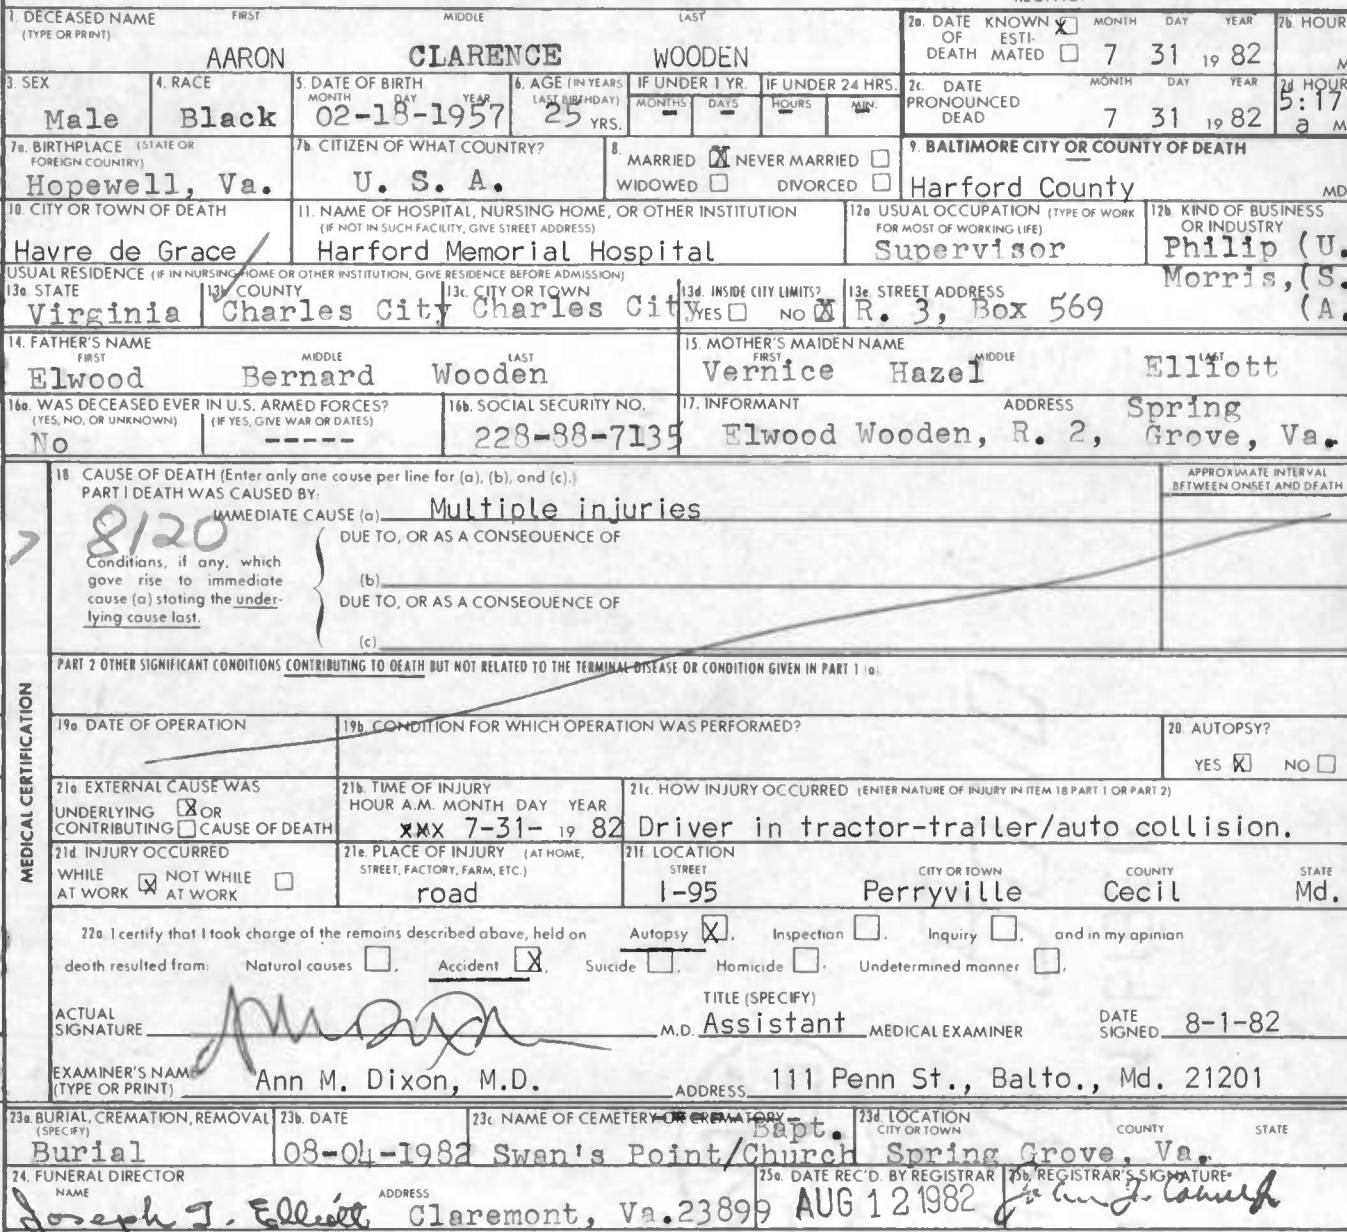 1. DECEASED NAME FIRST MIDDLE LAST
(TYPE OR PRINT)
AARON CLARENCE WOODEN
2a. DATE OF DEATH KNOWN X ESTIMATED MONTH DAY YEAR
7 31 19 82
2b. HOUR
M
3. SEX
Male
4. RACE
Black
5. DATE OF BIRTH
MONTH DAY YEAR
02-18-1957
6. AGE (IN YEARS
LAST BIRTHDAY)
25 YRS.
IF UNDER 1 YR.
MONTHS DAYS
- -
IF UNDER 24 HRS.
HOURS MIN.
- -
2c. DATE PRONOUNCED DEAD MONTH DAY YEAR
7 31 19 82
2d HOUR
5:17
a M
7a. BIRTHPLACE (STATE OR
FOREIGN COUNTRY)
Hopewell, Va.
7b. CITIZEN OF WHAT COUNTRY?
U. S. A.
8.
MARRIED X NEVER MARRIED
WIDOWED DIVORCED
9. BALTIMORE CITY OR COUNTY OF DEATH
Harford County MD
10. CITY OR TOWN OF DEATH
Havre de Grace
11. NAME OF HOSPITAL, NURSING HOME, OR OTHER INSTITUTION
(IF NOT IN SUCH FACILITY, GIVE STREET ADDRESS)
Harford Memorial Hospital
12a USUAL OCCUPATION (TYPE OF WORK
FOR MOST OF WORKING LIFE)
Supervisor
12b. KIND OF BUSINESS
OR INDUSTRY
Philip (U.
Morris,(S.
(A.
USUAL RESIDENCE (IF IN NURSING HOME OR OTHER INSTITUTION, GIVE RESIDENCE BEFORE ADMISSION)
13a. STATE
Virginia
13b. COUNTY
Charles City
13c. CITY OR TOWN
Charles Cit
13d. INSIDE CITY LIMITS?
YES NO X
13e. STREET ADDRESS
R. 3, Box 569
14. FATHER'S NAME
FIRST MIDDLE LAST
Elwood Bernard Wooden
15. MOTHER'S MAIDEN NAME
FIRST MIDDLE LAST
Vernice Hazel Elliott
16a. WAS DECEASED EVER IN U.S. ARMED FORCES?
(YES, NO, OR UNKNOWN) (IF YES, GIVE WAR OR DATES)
No -----
16b. SOCIAL SECURITY NO.
228-88-7135
17. INFORMANT ADDRESS
Elwood Wooden, R. 2, Spring
Grove, Va.
MEDICAL CERTIFICATION
18 CAUSE OF DEATH (Enter only one cause per line for (a), (b), and (c).)
PART I DEATH WAS CAUSED BY:
APPROXIMATE INTERVAL
BETWEEN ONSET AND DEATH
IMMEDIATE CAUSE (a) Multiple injuries
8120
DUE TO, OR AS A CONSEQUENCE OF
Conditions, if any, which
gave rise to immediate
cause (a) stating the under-
lying cause last.
(b)
DUE TO, OR AS A CONSEQUENCE OF
(c)
PART 2 OTHER SIGNIFICANT CONDITIONS CONTRIBUTING TO DEATH BUT NOT RELATED TO THE TERMINAL DISEASE OR CONDITION GIVEN IN PART 1 (a)
19a DATE OF OPERATION
19b. CONDITION FOR WHICH OPERATION WAS PERFORMED?
20. AUTOPSY?
YES X NO
21a EXTERNAL CAUSE WAS
UNDERLYING X OR
CONTRIBUTING CAUSE OF DEATH
21b. TIME OF INJURY
HOUR A.M. MONTH DAY YEAR
XMX 7-31- 19 82
21c. HOW INJURY OCCURRED (ENTER NATURE OF INJURY IN ITEM 18 PART 1 OR PART 2)
Driver in tractor-trailer/auto collision.
21d. INJURY OCCURRED
WHILE AT WORK X NOT WHILE AT WORK
21e. PLACE OF INJURY (AT HOME,
STREET, FACTORY, FARM, ETC.)
road
21f. LOCATION
STREET CITY OR TOWN COUNTY STATE
I-95 Perryville Cecil Md.
22a I certify that I took charge of the remains described above, held on Autopsy X, Inspection, Inquiry, and in my opinion
death resulted from: Natural causes, Accident X, Suicide, Homicide, Undetermined manner,
ACTUAL
SIGNATURE
M.D.
TITLE (SPECIFY)
Assistant MEDICAL EXAMINER
DATE
SIGNED 8-1-82
EXAMINER'S NAME
(TYPE OR PRINT) Ann M. Dixon, M.D. ADDRESS 111 Penn St., Balto., Md. 21201
23a. BURIAL, CREMATION, REMOVAL
(SPECIFY)
Burial
23b. DATE
08-04-1982
23c. NAME OF CEMETERY OR CREMATORY
Bapt.
Swan's Point/Church
23d. LOCATION
CITY OR TOWN COUNTY STATE
Spring Grove, Va.
24. FUNERAL DIRECTOR
NAME ADDRESS
Joseph T. Elliott Claremont, Va.23899
25a. DATE REC'D. BY REGISTRAR
AUG 12 1982
25b. REGISTRAR'S SIGNATURE